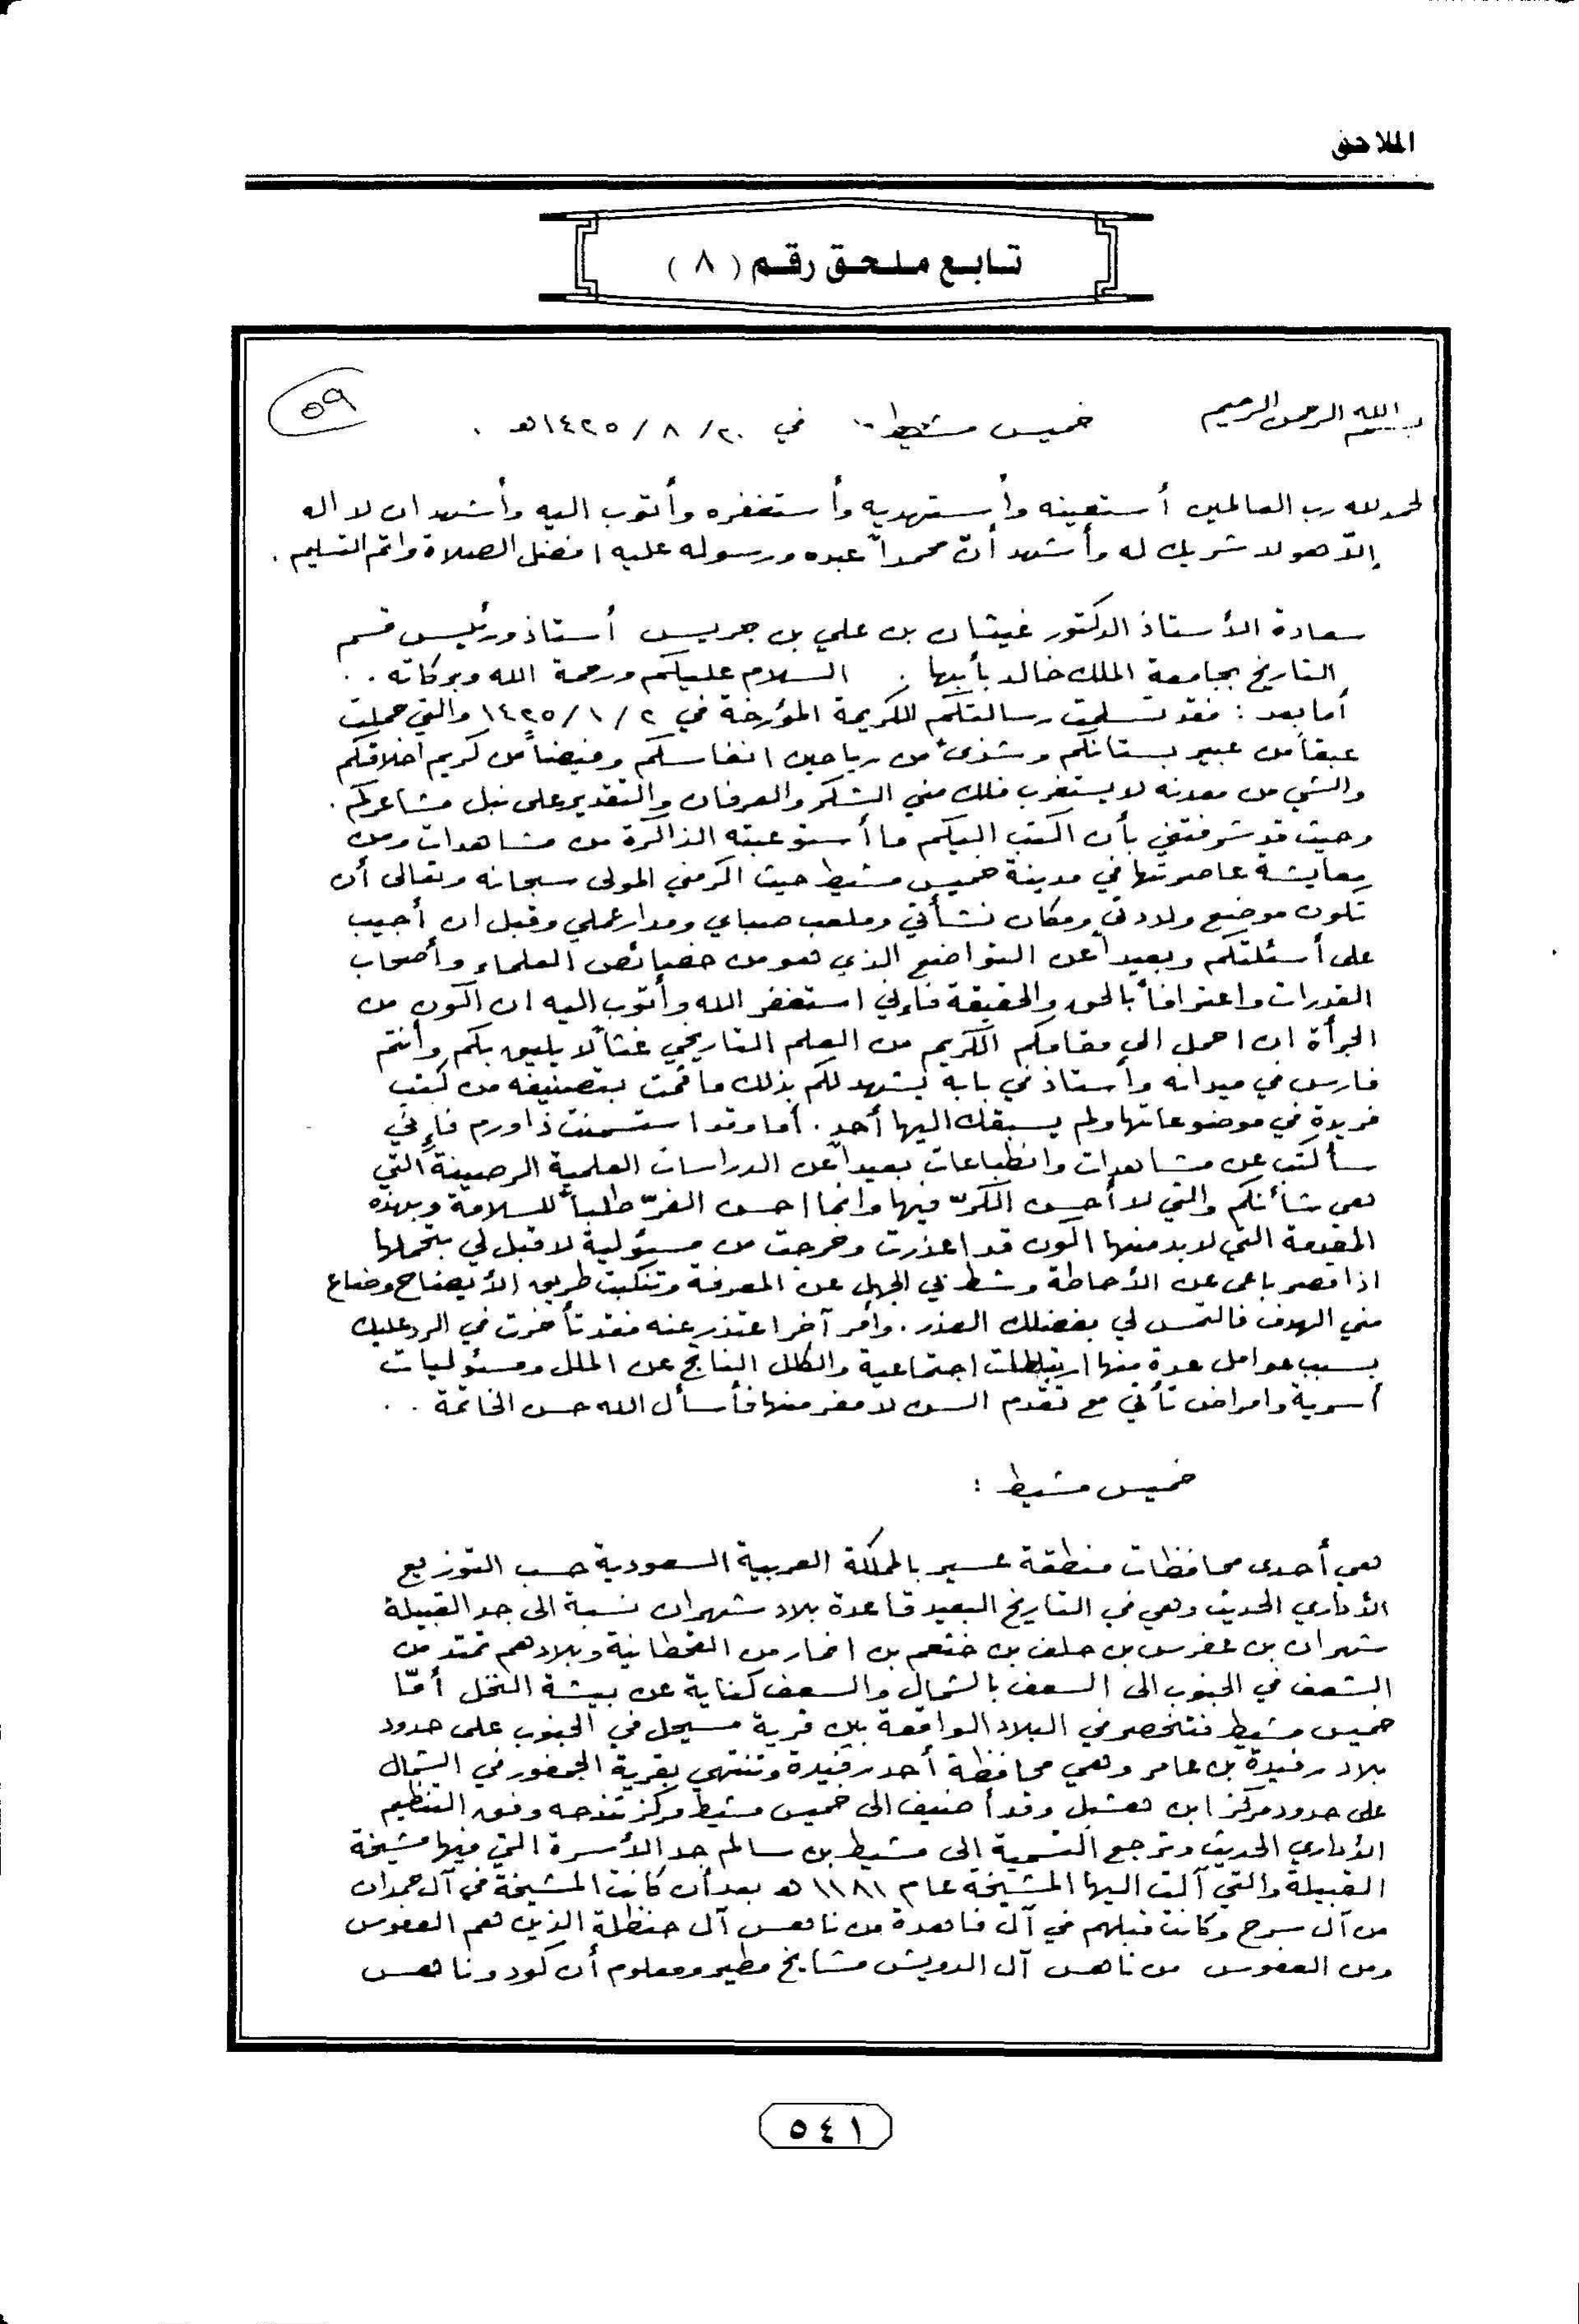 الملاحق
تابع ملحق رقم ( ٨ )
٥٩
بسم الله الرحمن الرحيم خميس مشيط في ٢٠/ ٨ / ١٤٢٥هـ .
الحمد لله رب العالمين أستعينه وأستهديه وأستغفره وأتوب اليه وأشهد ان لا اله
إلّا هو لا شريك له وأشهد أنّ محمداً عبده ورسوله عليه افضل الصلاة واتم التسليم .
سعادة الأستاذ الدكتور غيثان بن علي بن جريس أستاذ ورئيس قسم
التاريخ بجامعة الملك خالد بأبها . السلام عليكم ورحمة الله وبركاته . .
أما بعد : فقد تسلمت رسالتكم الكريمة المؤرخة في ١٤٢٥/١/٢ والتي حملت
عبقاً من عبير بستانكم وشذىً من رياحين انفاسكم وفيضاً من كريم اخلاقكم
والشي من معدنه لا يستغرب فلك مني الشكر والعرفان والتقدير على نبل مشاعركم .
وحيث قد شرفتني بأن اكتب اليكم ما أستوعبته الذاكرة من مشاهدات ومن
معايشة عاصرتها في مدينة خميس مشيط حيث اكرمني المولى سبحانه وتعالى أن
تكون موضع ولادتي ومكان نشأتي وملعب صباي ومدار عملي وقبل ان أجيب
على أسئلتكم وبعيداً عن التواضع الذي هو من خصائص العلماء وأصحاب
القدرات واعترافاً بالحق والحقيقة فإني استغفر الله وأتوب اليه ان اكون من
الجرأة ان احمل الى مقامكم الكريم من العلم التاريخي غثاً لا يليق بكم وأنتم
فارس في ميدانه وأستاذ في بابه يشهد لكم بذلك ما قمت بتصنيفه من كتب
فريدة في موضوعاتها ولم يسبقك اليها أحد . أما وقد استسمنت ذا ورم فإني
سأكتب عن مشاهدات وانطباعات بعيداً عن الدراسات العلمية الرصينة التي
هي شأنكم والتي لا أحسن الكرّ فيها وانما احسن الفرّ طلباً للسلامة وبهذه
المقدمة التي لا بد منها اكون قد اعذرت وخرجت من مسئولية لا قبل لي بتحملها
اذا قصر باعي عن الأحاطة وشط بي الجهل عن المعرفة وتنكبت طريق الأيضاح وضاع
مني الهدف فالتمس لي بفضلك العذر . وأمر آخر اعتذر عنه فقد تأخرت في الرد عليك
بسبب عوامل عدة منها ارتباطات اجتماعية والكلل الناتج عن الملل ومسئوليات
أسرية وامراض تأتي مع تقدم السن لا مفر منها فأسأل الله حسن الخاتمة . .
خميس مشيط :
هي أحدى محافظات منطقة عسير بالمملكة العربية السعودية حسب التوزيع
الأداري الحديث وهي في التاريخ البعيد قاعدة بلاد شهران نسبة الى جد القبيلة
شهران بن عفرس بن حلف بن خثعم بن انمار من القحطانية وبلادهم تمتد من
الشعف في الجنوب الى السعف بالشمال والسعف كناية عن بيشة النخل أمّا
خميس مشيط فتنحصر في البلاد الواقعة بين قرية مسيحل في الجنوب على حدود
بلاد رفيدة بن عامر وهي محافظة أحد رفيدة وتنتهي بقرية الجمفور في الشمال
على حدود مركز ابن هشبل وقد أضيف الى خميس مشيط مركز تندحه وفق التنظيم
الأداري الحديث وترجع التسمية إلى مشيط بن سالم جد الأسرة التي فيها مشيخة
القبيلة والتي آلت اليها المشيخة عام ١١٨١ هـ بعد أن كانت المشيخة في آل حمدان
من آل سرح وكانت قبلهم في آل فاهدة من ناهس آل حنظلة الذين هم العفوس
ومن العفوس من ناهس آل الدويش مشايخ مطير ومعلوم أن كود وناهس
٥٤١